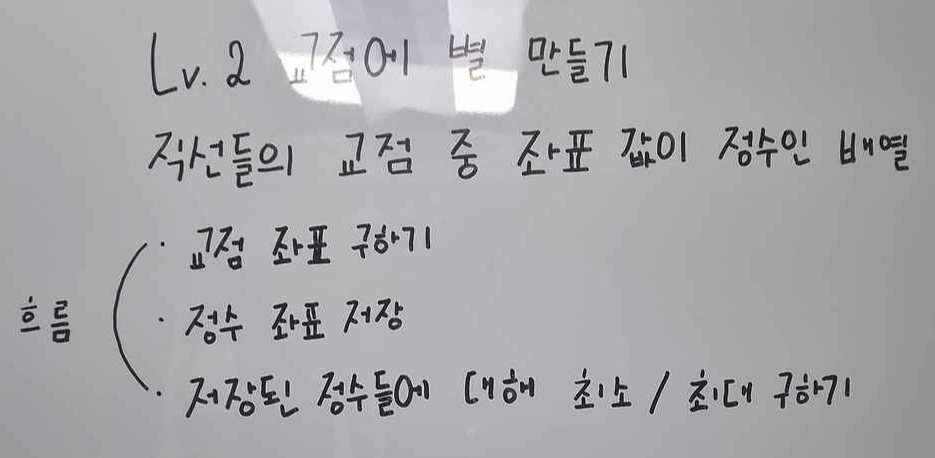 Lv. 2 교점에 별 만들기
직선들의 교점 중 좌표 값이 정수인 배열
· 교점 좌표 구하기
흐름 · 정수 좌표 저장
· 저장된 정수들에 대해 최소 / 최대 구하기